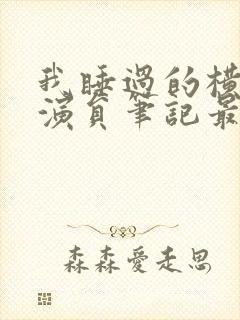 我睡過的橫
演員筆記最
森森愛走思